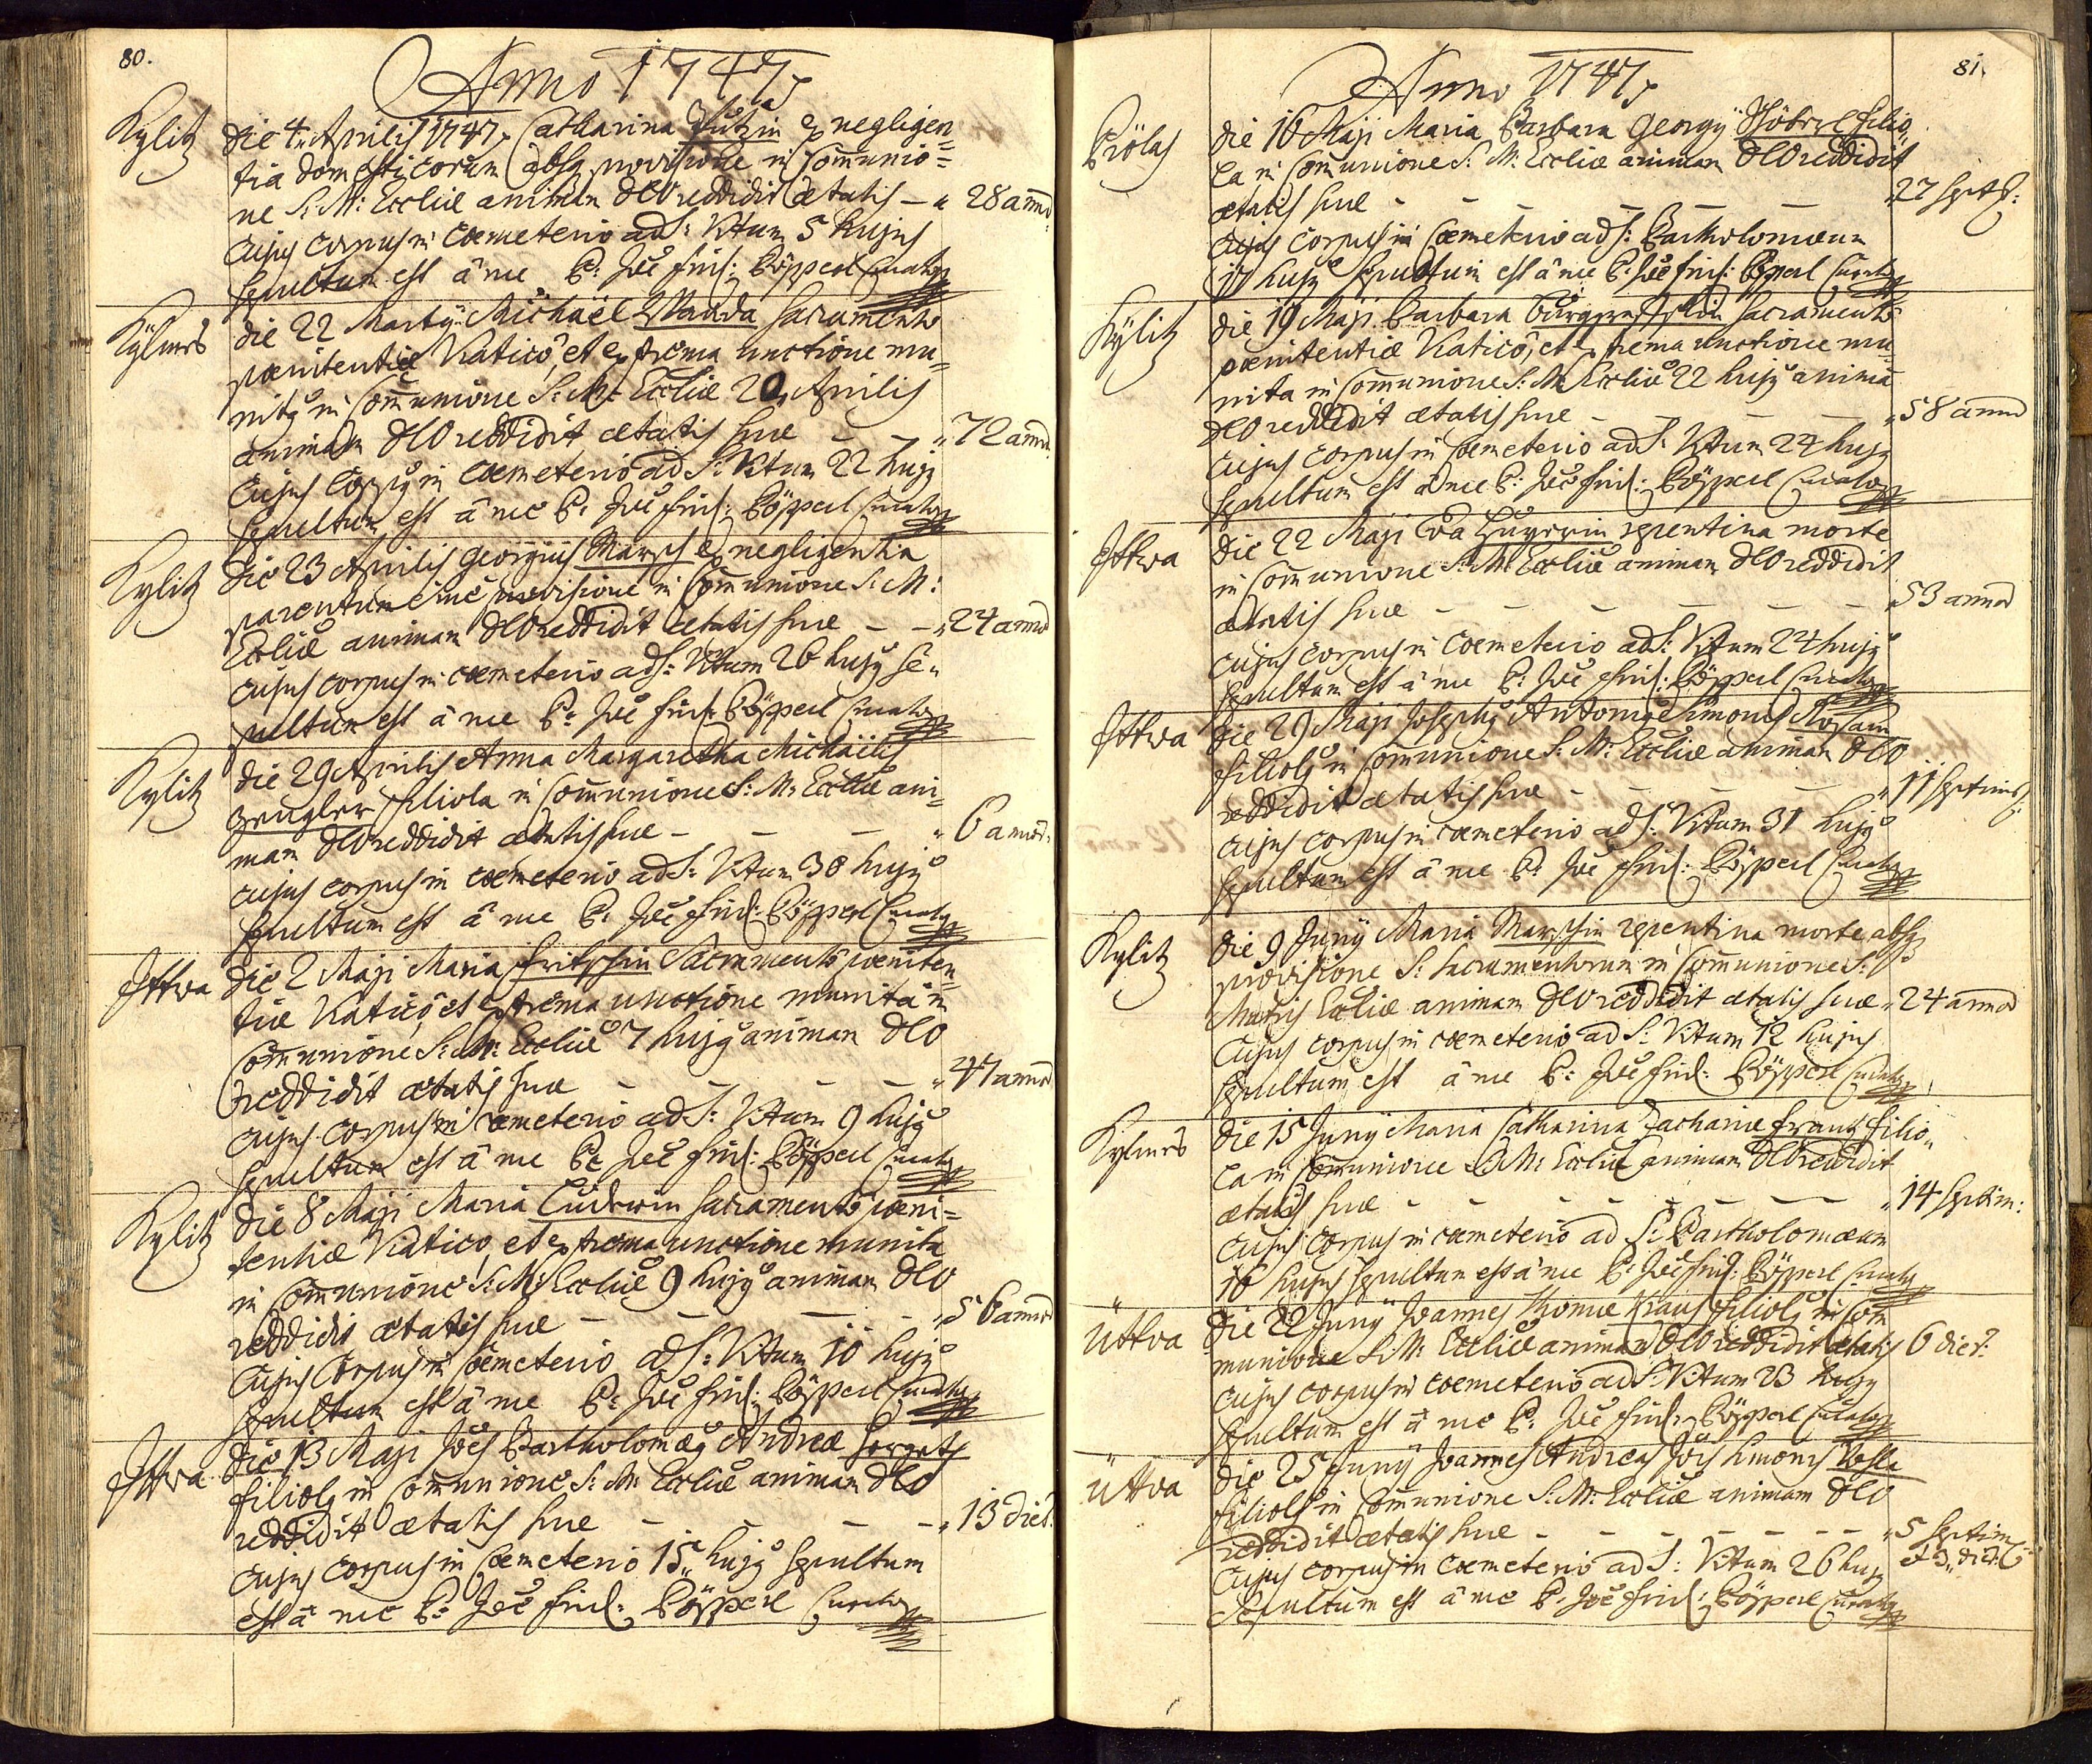 80.
Anno 1747
Kylitz
die 4. Aprilis 1747. Catharina ex negligen=
tia domesticorum absq provisione in Communio=
ne S: M: Eccliae animam DEO reddidit aetatis – " 28 annor
Cujus corpus in Coemeterio ad S: Vitum 5 hujus
sepultum est à me P: Joe Poepperl Curato
Kylmes
die 22 Marty Michaël Wanda Sacramento
poenitentiae Viatico, et extrema unctione mu=
nitq in Communione S: M: Eccliae 20. Aprilis
animam DEO reddidit aetatis suae – – " 72 annor
Cujus Corpq in Coemeterio ad S: Vitum 22 hujq
sepultum est à me P: Joe Pöpperl Curato
Kylitz
die 23 Aprilis Georgius Marsch ex negligentia
parentum sine provisione in Communione S: M:
Eccliae animam DEO reddidit aetatis suae – – " 24 annor
Cujus corpus in coemeterio ad S: Vitum 26 hujq se=
pultum est à me P: Joe Pöpperl Curato
Kylitz
die 29 Aprilis Anna Margaretha Michaëlis
Zengler filiola in Communione S: M: Eccliae ani=
mam DEO reddidit aetatis suae – – – " 6 annor:
cujus corpus in coemeterio ad S: Vitum 30 hujq
sepultum est à me P: Joe Pöpperl Curato
Ottwa
die 2 Maji Maria Fritschin Sacramento poeniten=
tiae Viatico, et extrema unctione munita in
Communione S: M: Eccliae 7 hujq animam DEO
reddidit aetatis suae – – – – " 47 annor
cujus corpus in coemeterio ad S: Vitum 9 hujq
sepultum est à me P: Joe Pöpperl Curato
Kylitz
die 8 Maji Maria Ludwin Sacramento poeni=
tentiae Viatico, et extrema unctione munita
in Communione S: M: Eccliae 9 hujq animam DEO
reddidit aetatis suae – – – – " 56 annor
Cujus Corpus in Coemeterio ad S: Vitum 10 hujq
sepultum est à me P: Joe Pöpperl Curato
Ottwa
die 13 Maji Joes Bartholomaeq Andreae
filiolq in Communione S: M: Eccliae animam DEO
reddidit aetatis suae – – – – " 13 dier:
Cujus corpus in Coemeterio 15. hujq sepultum
est à me P: Joe Pöpperl Curato
81.
Anno 1747
Prölas
die 16 Maji Maria Barbara Georgy filio=
la in Communione S: M: Eccliae animam DEO reddidit
aetatis suae – – – – – – " 27 sept:
Cujus Corpus in Coemeterio ad S: Bartholomaeum
17 hujq sepultum est à me P: Joe Pöpperl Curato
Kylitz
die 19 Maji Barbara Sacramento
poenitentiae Viatico, et extrema unctione mu=
nita in Communione S: M: Eccliae 22 hujq animã
DEO reddidit aetatis suae – – – – " 58 annor
Cujus Corpus in Coemeterio ad S: Vitum 24 hujq
sepultum est à me P: Joe Pöpperl Curato
Ottwa
die 22 Maji Eva repentina morte
in Communione S: M: Eccliae animam DEO reddidit
aetatis suae – – – – – – " 53 annor
cujus corpus in Coemeterio ad S: Vitum 24 hujq
sepultum est à me P: Joe Pöpperl Curato
Ottwa
die 29 Maji Josephq Antonyq Simonis
filiolq in Communione S: M: Eccliae animam DEO
reddidit aetatis suae – – – – " 11 septimas
Cujus corpus in coemeterio ad S: Vitum 31 hujq
sepultum est à me P: Joe Pöpperl Curato
Kylitz
die 9 Juny Maria Marschin repentina morte absq
provisione S: Sacramentorum in Communione S:
Matris Eccliae animam DEO reddidit aetatis suae " 24 annor
Cujus corpus in coemeterio ad S: Vitum 12 hujus
sepultum est à me P: Joe Pöpperl Curato
Kylmes
die 15 Juny Maria Catharina Zachariae Frantz filio=
la in Communione S: M: Eccliae animam DEO reddidit
aetatis suae – – – – – – " 14 septim:
Cujus Corpus in coemeterio ad S: Bartholomaeum
16 hujus sepultum est à me P: Joe Pöpperl Curato
Üttwa
die 22 Juny Joannes Thomae Kraus filiolq in Com
munione S: M: Eccliae animam DEO reddidit aetatis 6 dier:
cujus corpus in coemeterio ad S: Vitum 23 hujq
sepultum est à me P: Joe Pöpperl Curato
Üttwa
die 25 Juny Joannes Andreas Jois Simonis
filiolq in Communione S: M: Eccliae animam DEO
reddidit aetatis suae – – – – – " 5 septim
et 3 dier:
Cujus corpus in Coemeterio ad S: Vitum 26 hujq
Sepultum est à me P: Joe Pöpperl Curato